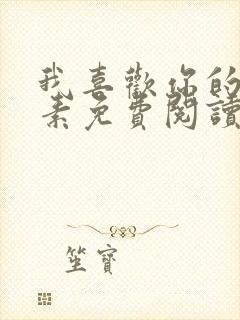 我喜歡你的
素免費閱讀
笙寶